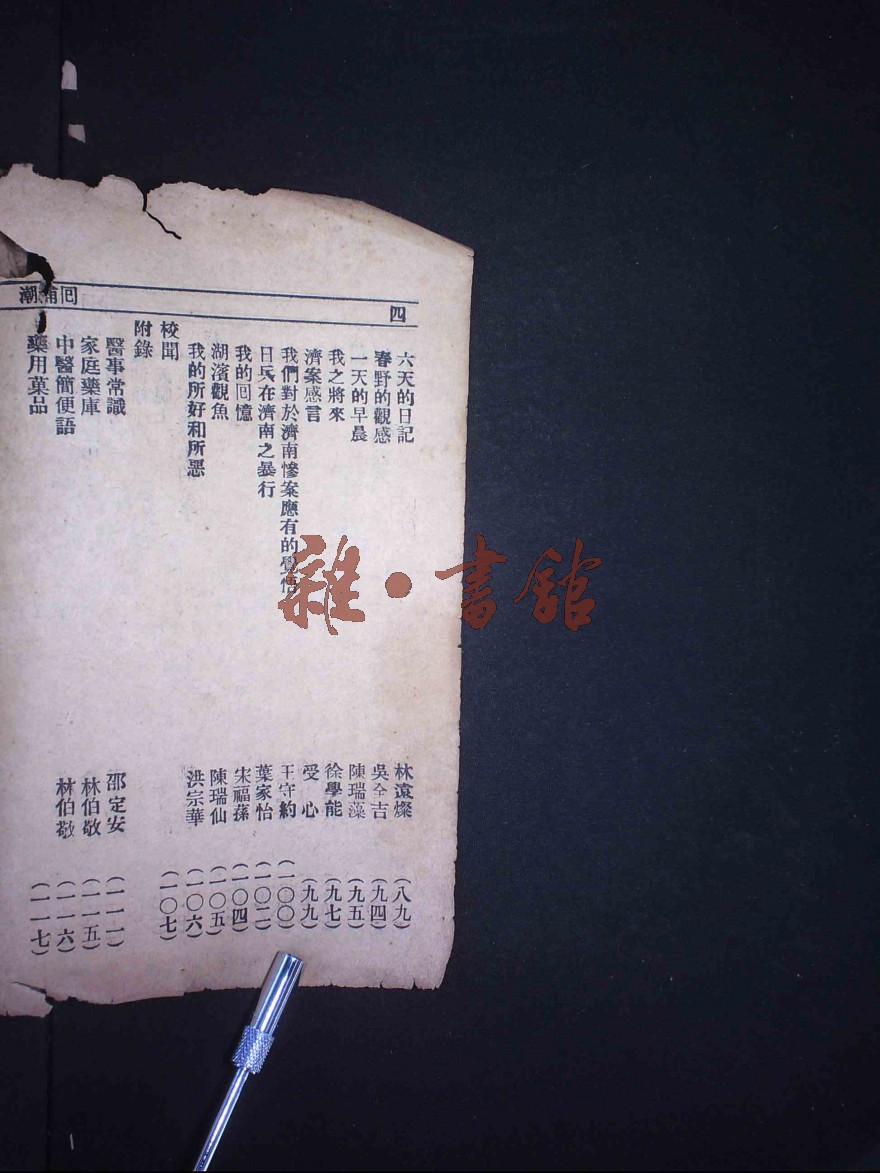 四
回浦潮
六天的日記 林遠燦 (八九)
春野的觀感 吳全吉 (九四)
一天的早晨 陳瑞藻 (九五)
我之將來 徐學能 (九七)
濟案感言 受心 (九九)
我們對於濟南慘案應有的覺悟 王守約 (一〇〇)
日兵在濟南之暴行 葉家怡 (一〇二)
我的回憶 宋福蓀 (一〇四)
湖濱觀魚 陳瑞仙 (一〇五)
我的所好和所惡 洪宗華 (一〇六)
校聞 (一〇七)
附錄
醫事常識 邵定安 (一一一)
家庭藥庫 林伯敬 (一一五)
中醫簡便語 林伯敬 (一一六)
藥用菓品 (一一七)
雜·書館